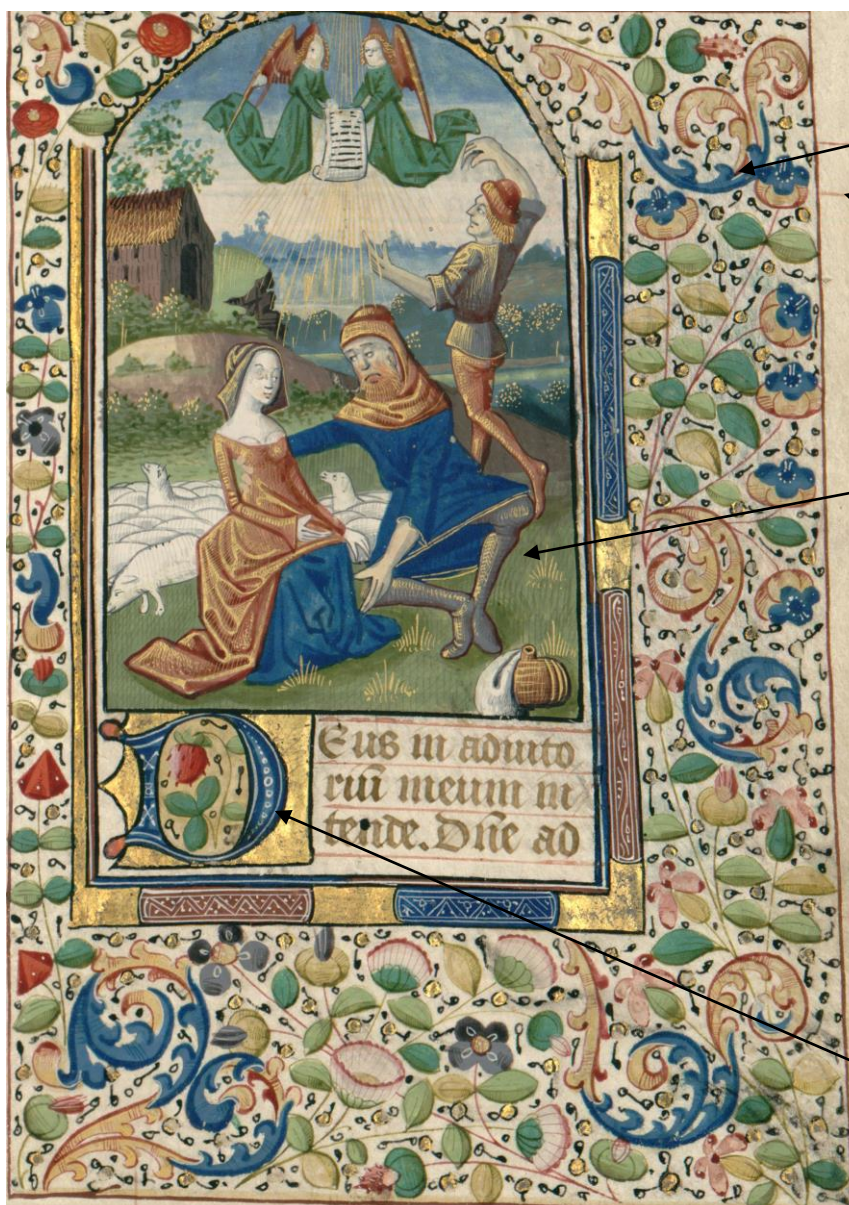 Eus in adiuto
riū meum in
tende. Dn̄e ad